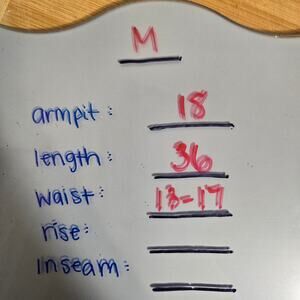 M
armpit: 18
length: 36
waist: 13-17
rise:
inseam: